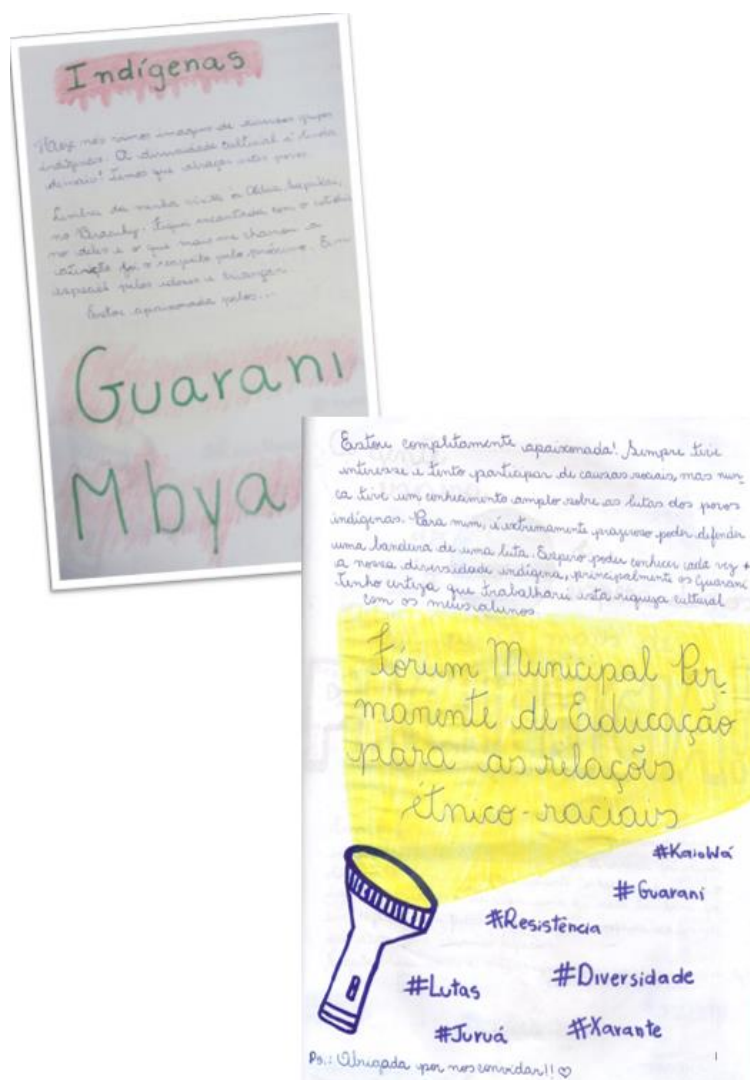 Indígenas
Hoje nós vimos imagens de diversos grupos
indígenas. A diversidade cultural é linda
demais! Temos que abraçar estes povos.
Lembro da minha visita à Aldeia Sapukai,
no Bracuhy. Fiquei encantada com o
deles e o que mais me chamou a
atenção foi o respeito pelo próximo. Em
especial pelos idosos e crianças.
Estou apaixonada pelos...
Guarani
Mbya
Estou completamente apaixonada! Sempre tive
interesse e tento participar de causas sociais, mas nun-
ca tive um conhecimento amplo sobre as lutas dos povos
indígenas. Para mim, é extremamente prazeroso poder defender
uma bandeira de uma luta. Espero poder conhecer cada vez +
a nossa diversidade indígena, principalmente os Guarani
Tenho certeza que trabalharei esta riqueza cultural
com os meus alunos.
Fórum Municipal Per-
manente de Educação
para as relações
étnico-raciais
#KaioWá
#Guarani
#Resistência
#Diversidade
#Lutas
#Xavante
#Juruá
Ps.: Obrigada por nos convidar!! ♡